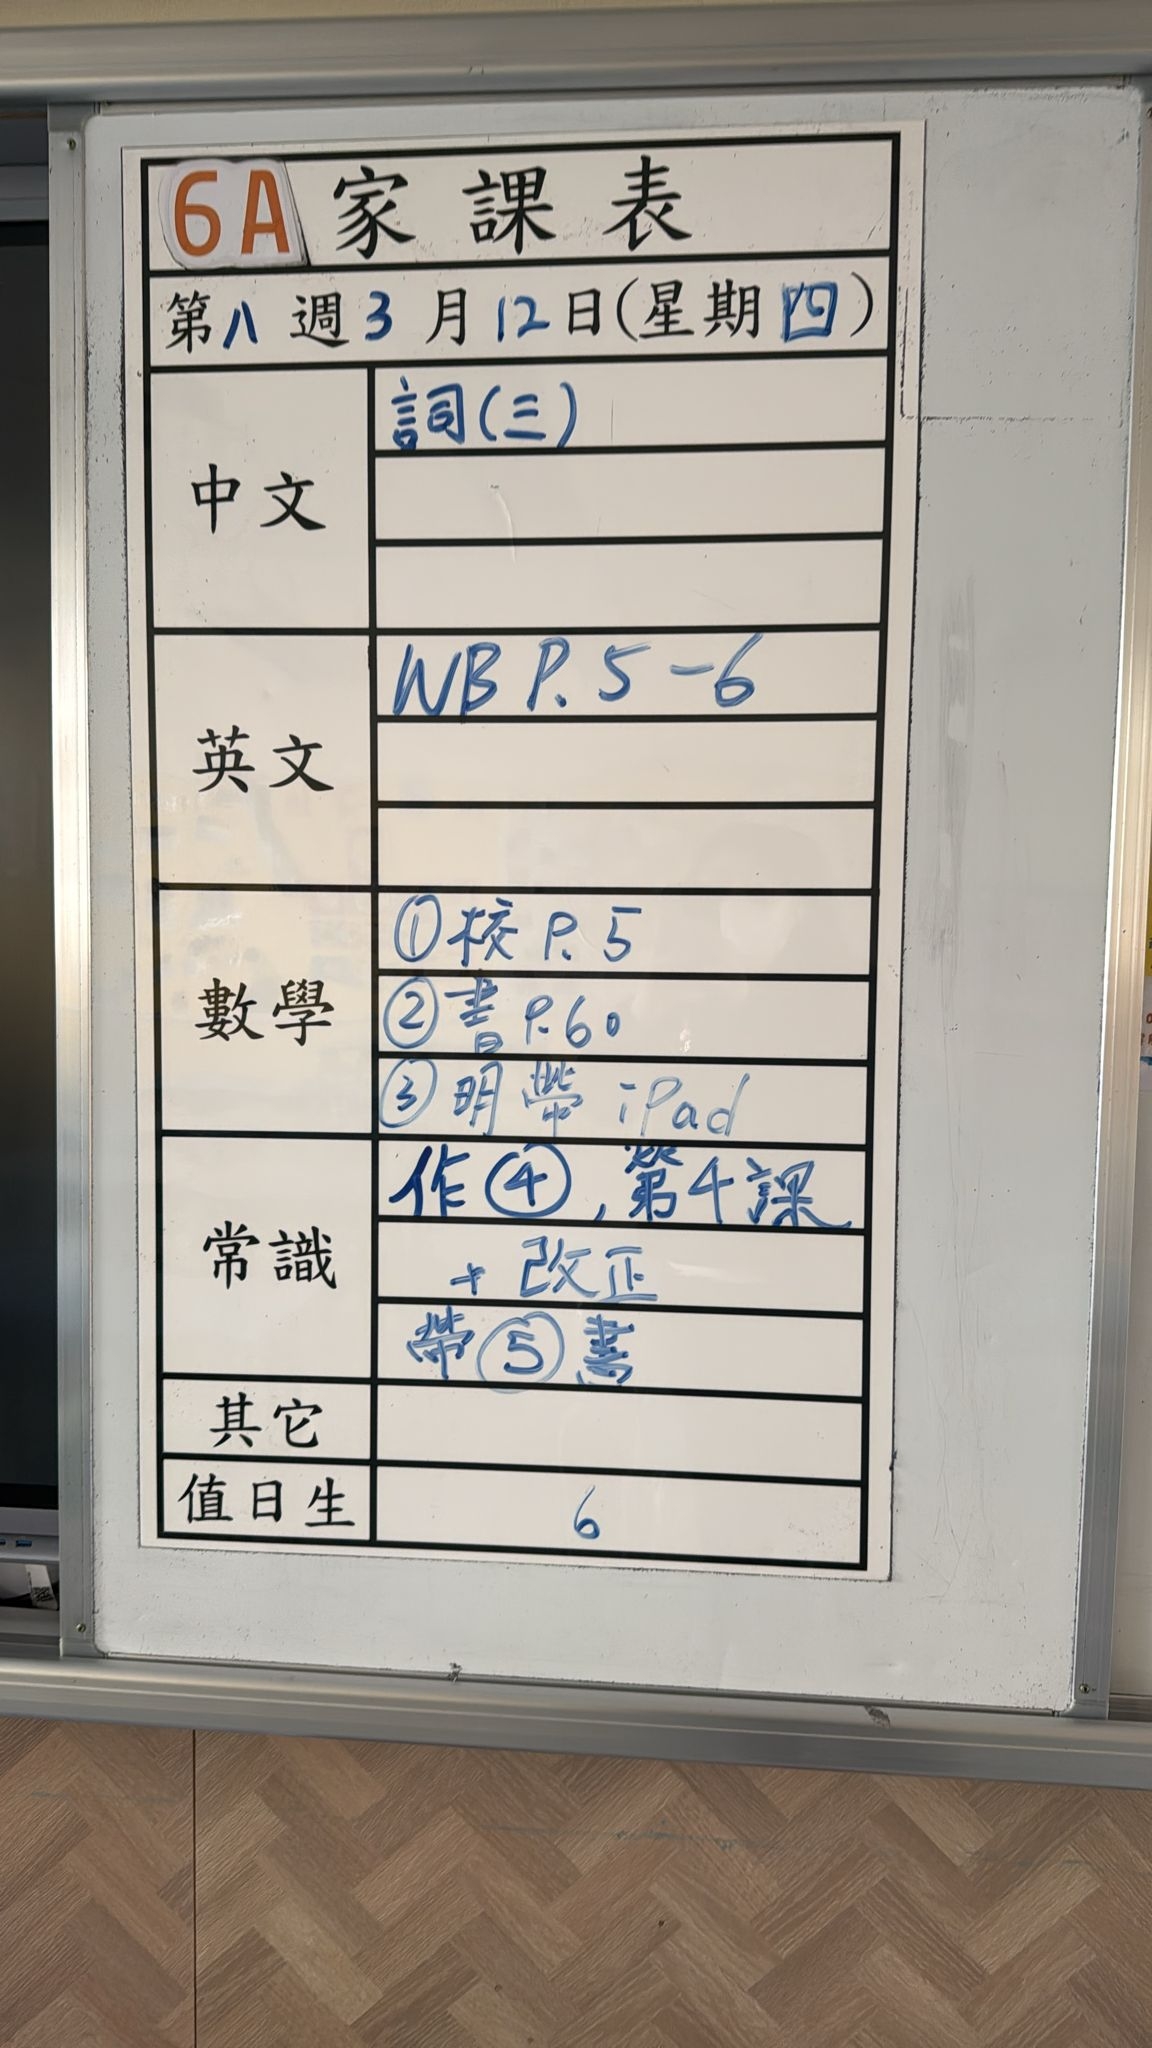 6A 家課表
第八週3月12日(星期四)
中文
詞(三)
英文
WB P.5-6
數學
①校P.5
②書P.60
③明帶 iPad
常識
作④,第4課
+改正
帶⑤書
其它
值日生
6